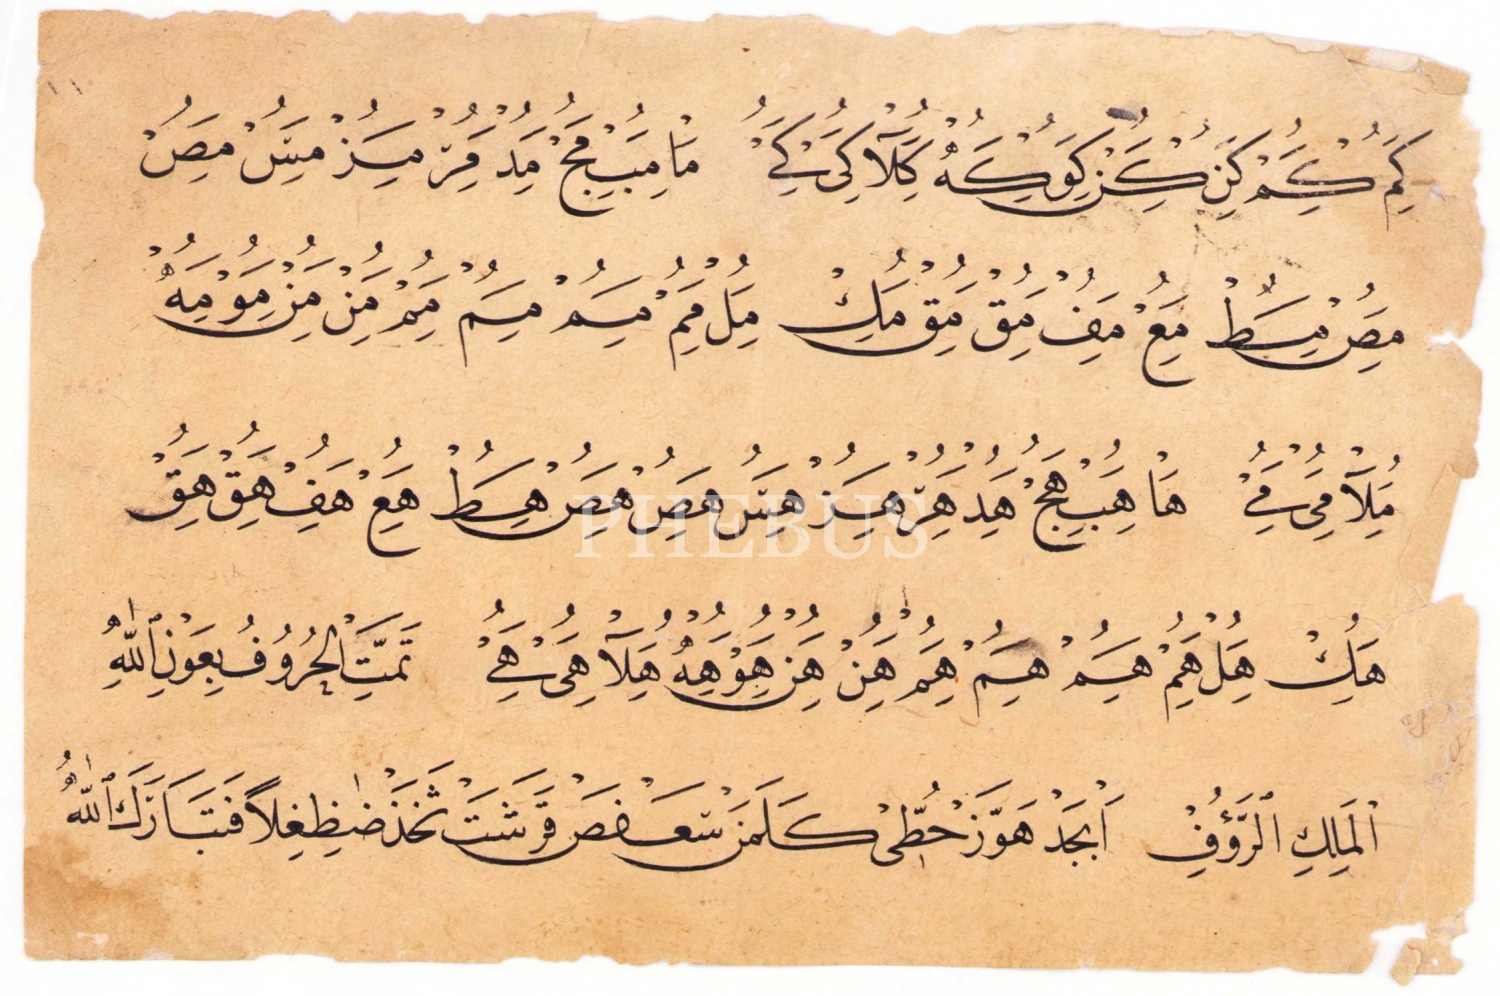 كِمُ كِمُ كِمُ كِنُ كِنُ كِوُ كِهُ كِلاُ كِىُ كِےُ مَا مِبُ مِجُ مِدُ مِرُ مِزُ مِسُ مِصُ
مِصُ مِسطُ مِعُ مِفُ مِقُ مِقُ مِكُ مِلُ مِمُ مِمُ مِمُ مِمُ مِنُ مِنُ مِوُ مِهُ
مِلاُ مِىُ مِےُ هَا هِبُ هِجُ هِدُ هِرُ هِزُ هِسُ هِصُ هِصُ هِسطُ هِعُ هِفُ هِقُ هِقُ
هِكُ هِلُ هِمُ هِمُ هِمُ هِمُ هِنُ هِنُ هِوُ هِهُ هِلاُ هِىُ هِےُ تَمَّتِ الْحُرُوفُ بِعَوْنِ ٱللّٰهِ
الْمَلِكِ ٱلرَّؤُفِ اَبْجَدْ هَوَّزْ حُطِّىْ كَلَمَنْ سَعْفَصْ قَرَشَتْ ثَخَّذْ ضَظِغِلاً فَتَبَارَكَ ٱللّٰهُ
PHEBUS